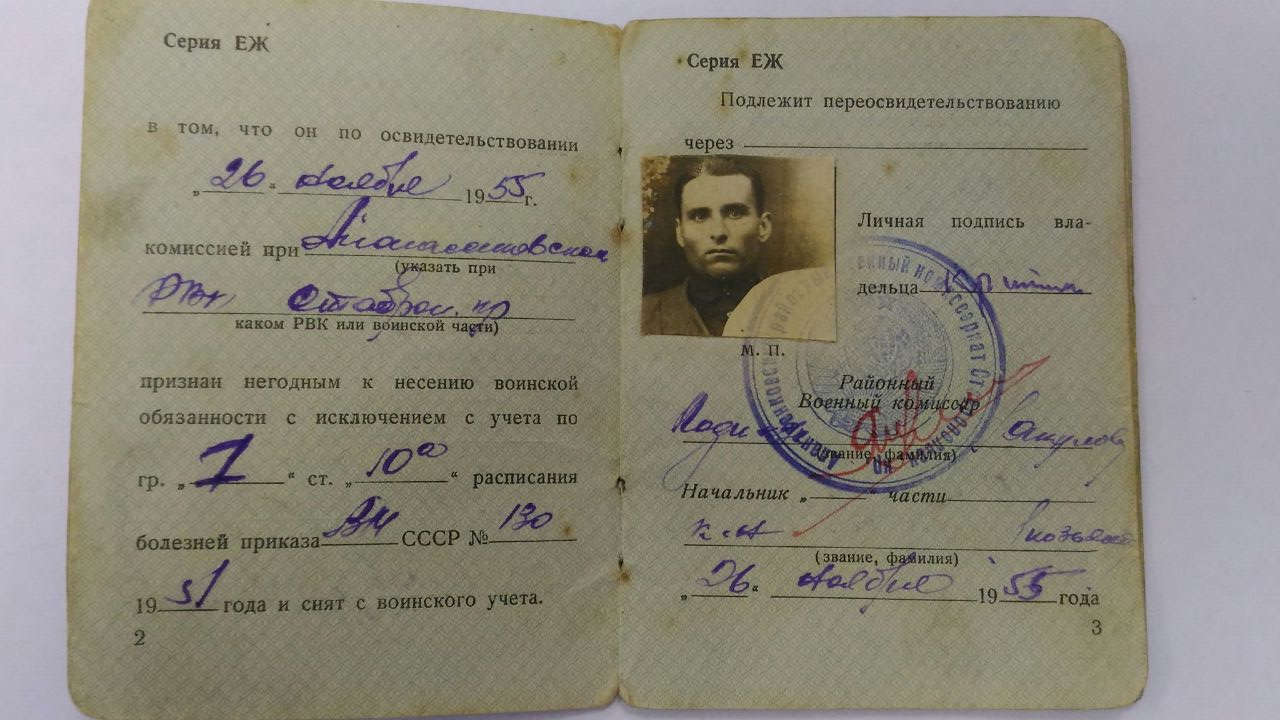 Серия ЕЖ
в том, что он по освидетельствовании
„ 26 “ ноября 1955 г.
комиссией при
(указать при
РВК Ставроп. кр
каком РВК или воинской части)
признан негодным к несению воинской
обязанности с исключением с учета по
гр. „ I “ ст. „ 10а “ расписания
болезней приказа ВМ СССР № 130
1951 года и снят с воинского учета.
2
Серия ЕЖ
Подлежит переосвидетельствованию
через
Личная подпись вла-
дельца
М. П.
Районный
Военный комиссар
(звание, фамилия)
Начальник „ “ части
к-н
(звание, фамилия)
„ 26 “ ноября 1955 года
3